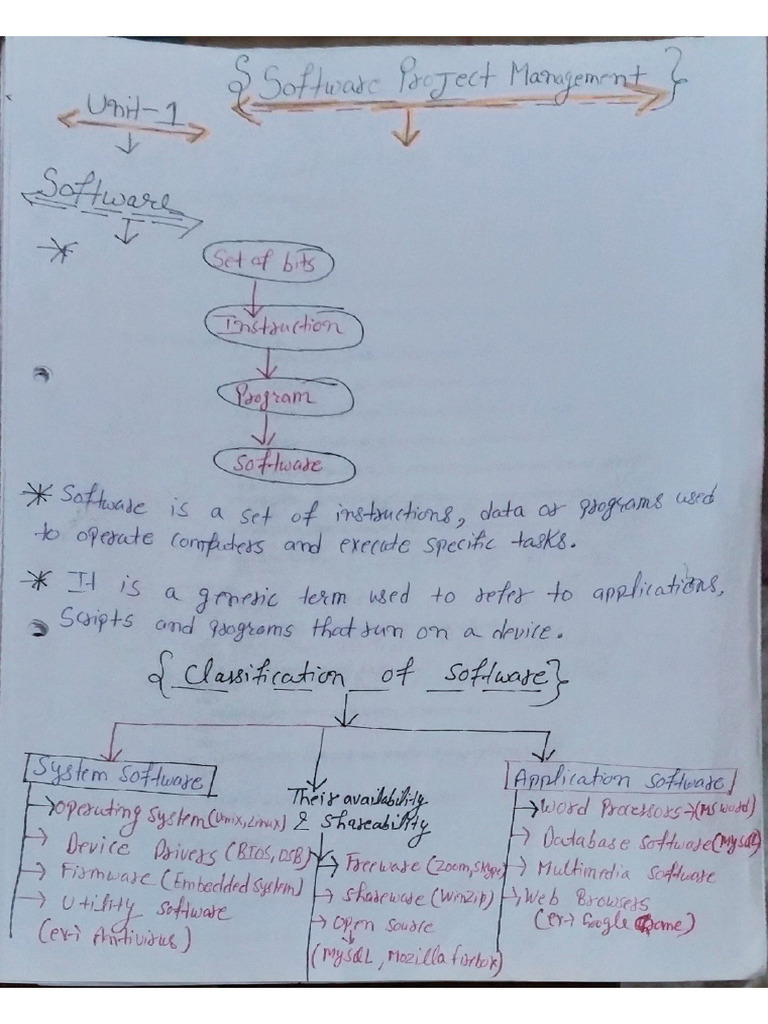 { Software Project Management }
Unit-1
Software
Set of bits
Instruction
Program
Software
* Software is a set of instructions, data or programs used
to operate computers and execute specific tasks.
* It is a generic term used to refer to applications,
Scripts and programs that run on a device.
{ Classification of Software }
System Software
→ Operating System (Unix, Linux)
→ Device Drivers (BIOS, DSB)
→ Firmware (Embedded System)
→ Utility Software
(ex→ Antivirus)
Their availability
& Shareability
→ Freeware (Zoom, Skype)
→ Shareware (WinZip)
→ Open Source
(MySQL, Mozilla firbox)
Application Software
→ Word Processors → (MS Word)
→ Database Software (MySQL)
→ Multimedia Software
→ Web Browsers
(ex→ Google Crome)